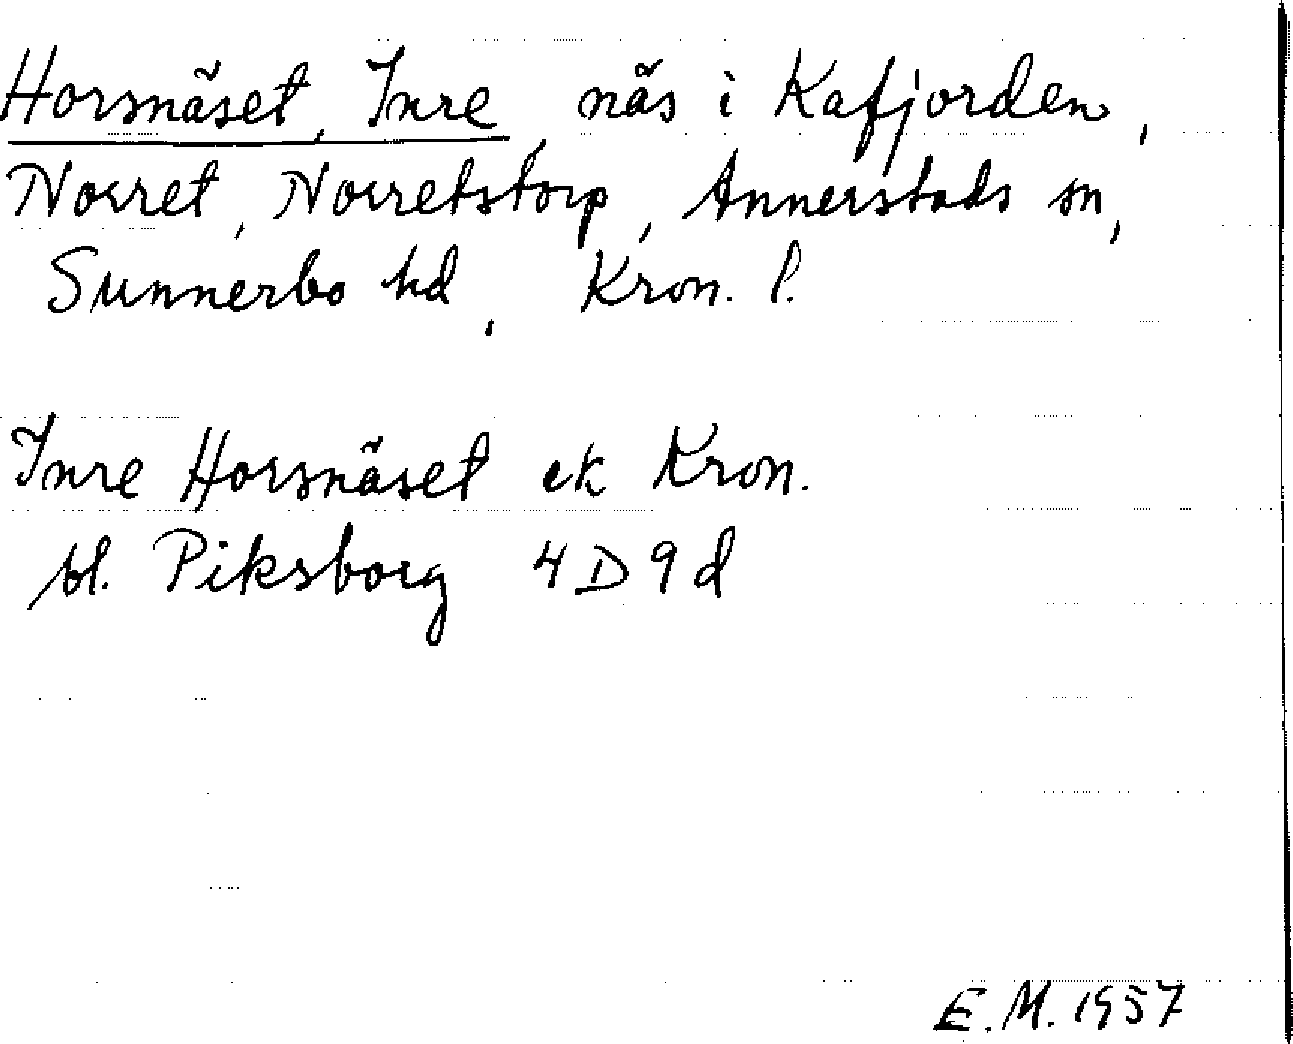 Horsnäset, Inre, näs i Kafjorden,
Norret, Norretstorp, Annerstads sn,
Sunnerbo hd, Kron. l.
Inre Horsnäset ek Kron.
bl. Piksborg 4 D 9 d
E. M. 1957